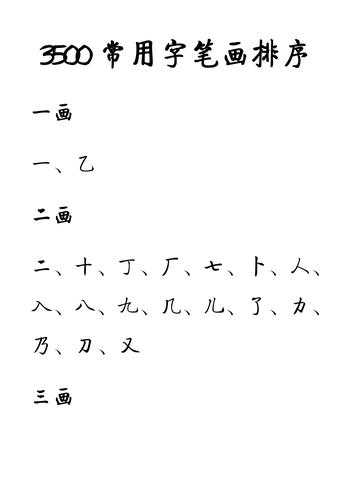 3500常用字笔画排序
一画
一、乙
二画
二、十、丁、厂、七、卜、人、
入、八、九、几、儿、了、力、
乃、刀、又
三画